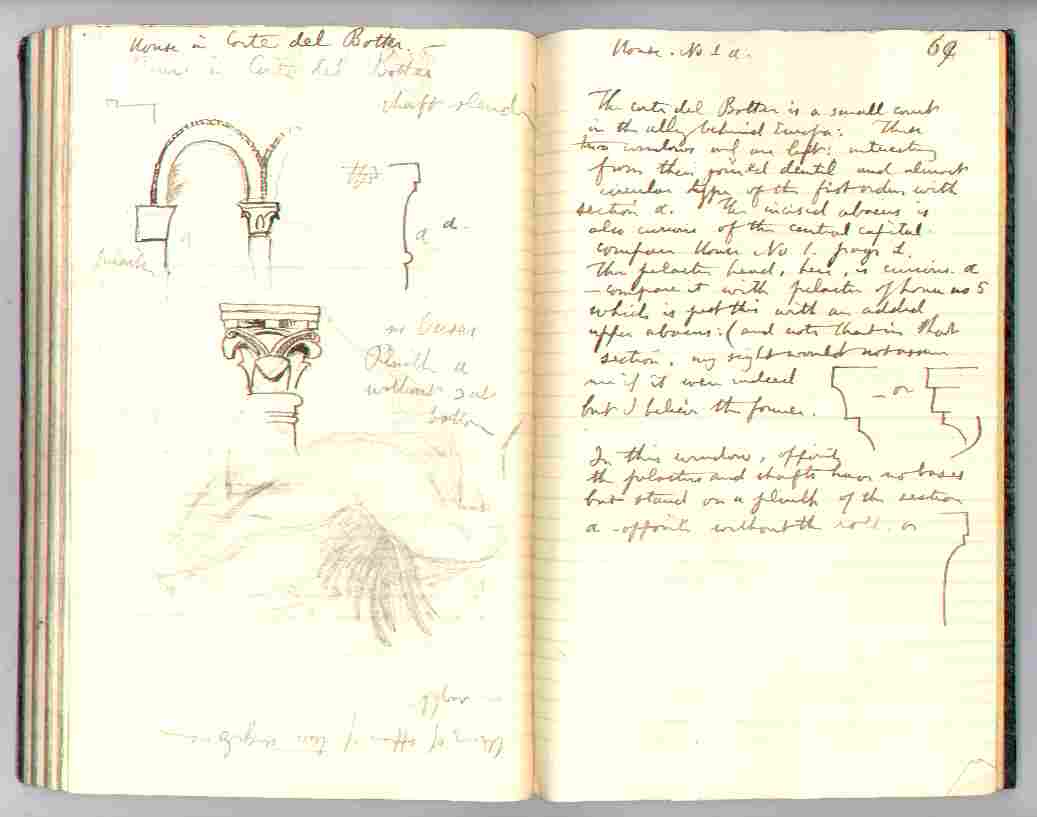 House in Corte del Botter.
House in Corte del Botter
shaft slender
a a.
no bases
Plinth a
without
bottom
House. No 1 a. 69
The corte del Botter is a small court
in the alley behind Europa: These
two windows only are left: interesting
from their jointed dentil and almost
circular type of the first order with
section a. The incised abacus is
also curious of the central capital.
compare House No 1. page 2.
The pilaster head, here, is curious. a
- compare it with pilaster of house no 5
which is just this with an added
upper abacus: (and note that in that
section, my sight would not assure
me if it were indeed - or
but I believe the former.
In this window, opposite
the pilasters and shafts have no bases
but stand on a plinth of the section
a - opposite without the roll. or